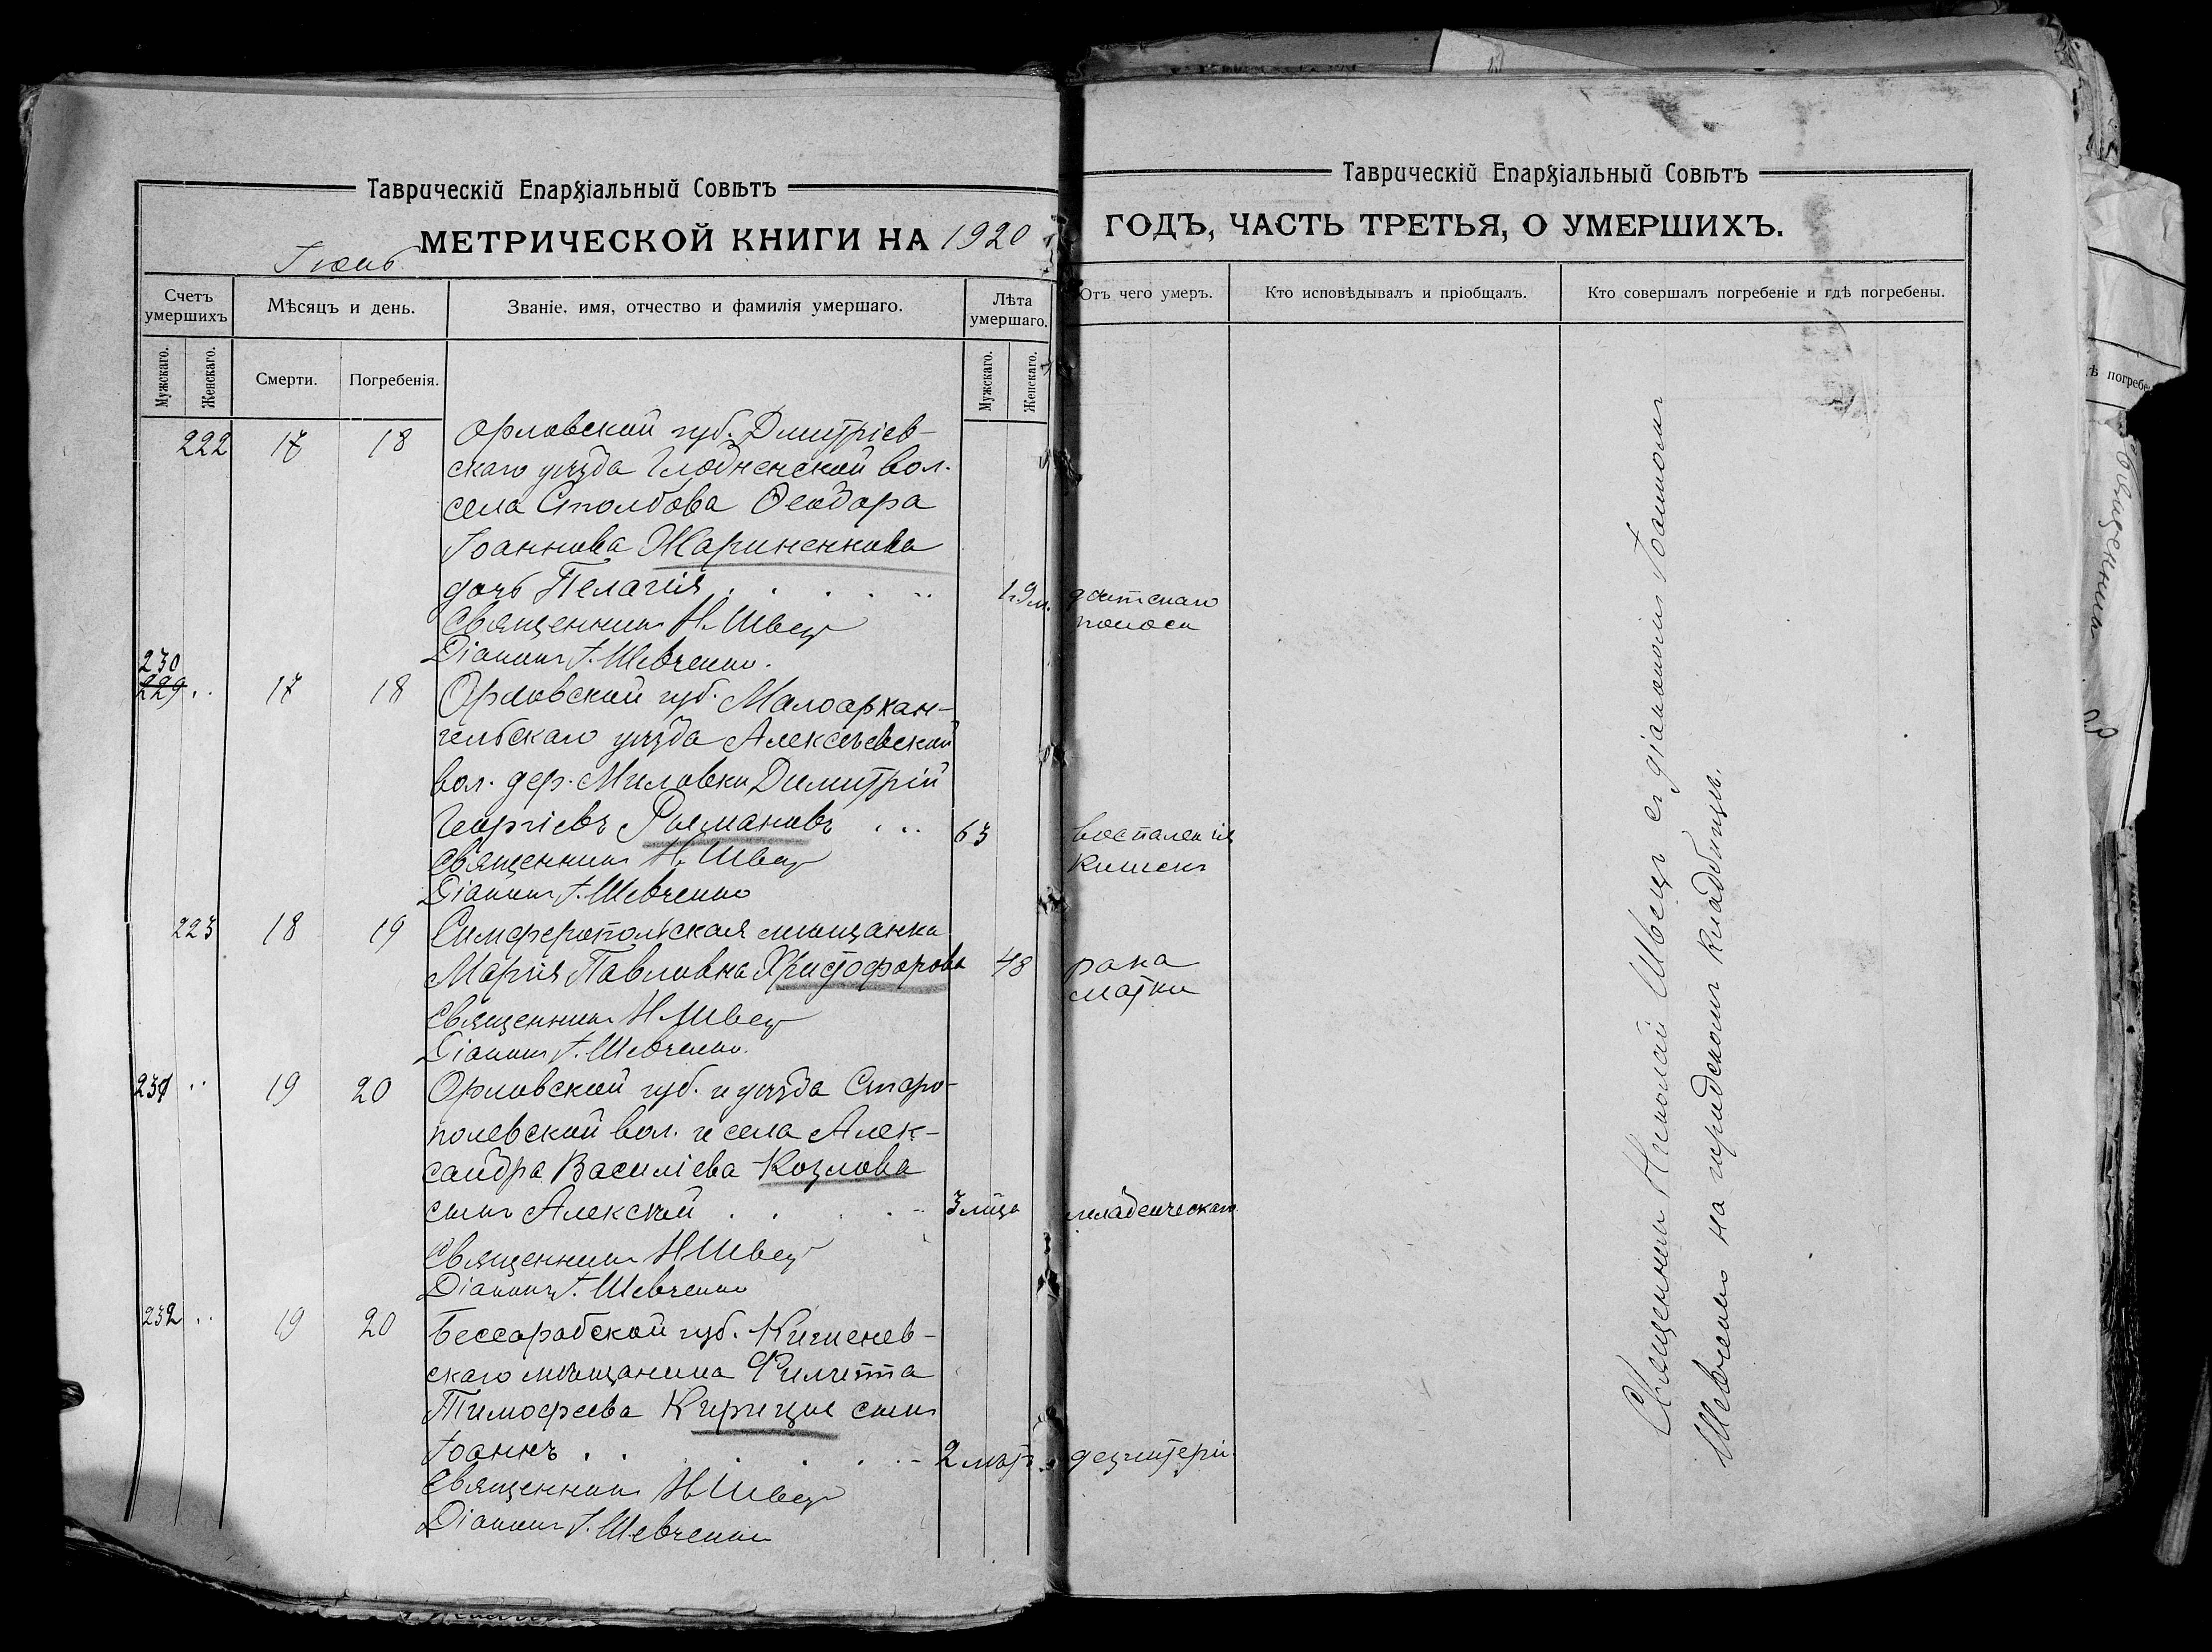 Таврическій Епархіальный Совѣтъ
МЕТРИЧЕСКОЙ КНИГИ НА 1920
Іюнь
Счетъ умершихъ
Мѣсяцъ и день.
Званіе, имя, отчество и фамилія умершаго.
Лѣта умершаго.
Мужскаго.
Женскаго.
Смерти.
Погребенія.
Мужскаго.
Женскаго.
222 17 18 Орловской губ. Дмитріев-
скаго уѣзда Глодненской вол.
села Столбова Ѳеодора
Іоаннова Жариненкова
дочь Пелагія . . . . . 1 г. 9 м.
Священникъ Н. Швец
Діаконъ І. Шевченко.
230
229 . . 17 18 Орловской губ. Малоархан-
гельскаго уѣзда Алексѣевской
вол. дер. Миловки Димитрій
Георгіевъ Рымановъ . . . 63
Священникъ Н. Швец
Діаконъ І. Шевченко
223 18 19 Симферопольская мѣщанка
Марія Павловна Христофорова 48
Священникъ Н. Швец
Діаконъ І. Шевченко.
231 . . 19 20 Орловской губ. и уѣзда Старо-
полевской вол. и села Алек-
сандра Василіева Козлова
сынъ Алексѣй . . . . 3 мца
Священникъ Н Швец
Діаконъ І. Шевченко
232 . . 19 20 Бессарабской губ. Кишенев-
скаго мѣщанина Филиппа
Тимофеева Кирицы сынъ
Іоаннъ . . . . . . 2 лѣтъ
Священникъ Н Швец
Діаконъ І. Шевченко
Таврическій Епархіальный Совѣтъ
ГОДЪ, ЧАСТЬ ТРЕТЬЯ, О УМЕРШИХЪ.
Отъ чего умеръ.
Кто исповѣдывалъ и пріобщалъ.
Кто совершалъ погребеніе и гдѣ погребены.
дѣтскаго
поноса
воспаленія
кишекъ
рака
матки
младенческаго
дезинтеріи
Священникъ Николай Швецъ съ діакономъ Іоанномъ
Шевченко на городскомъ кладбищѣ.
ѣ погребе
Священник